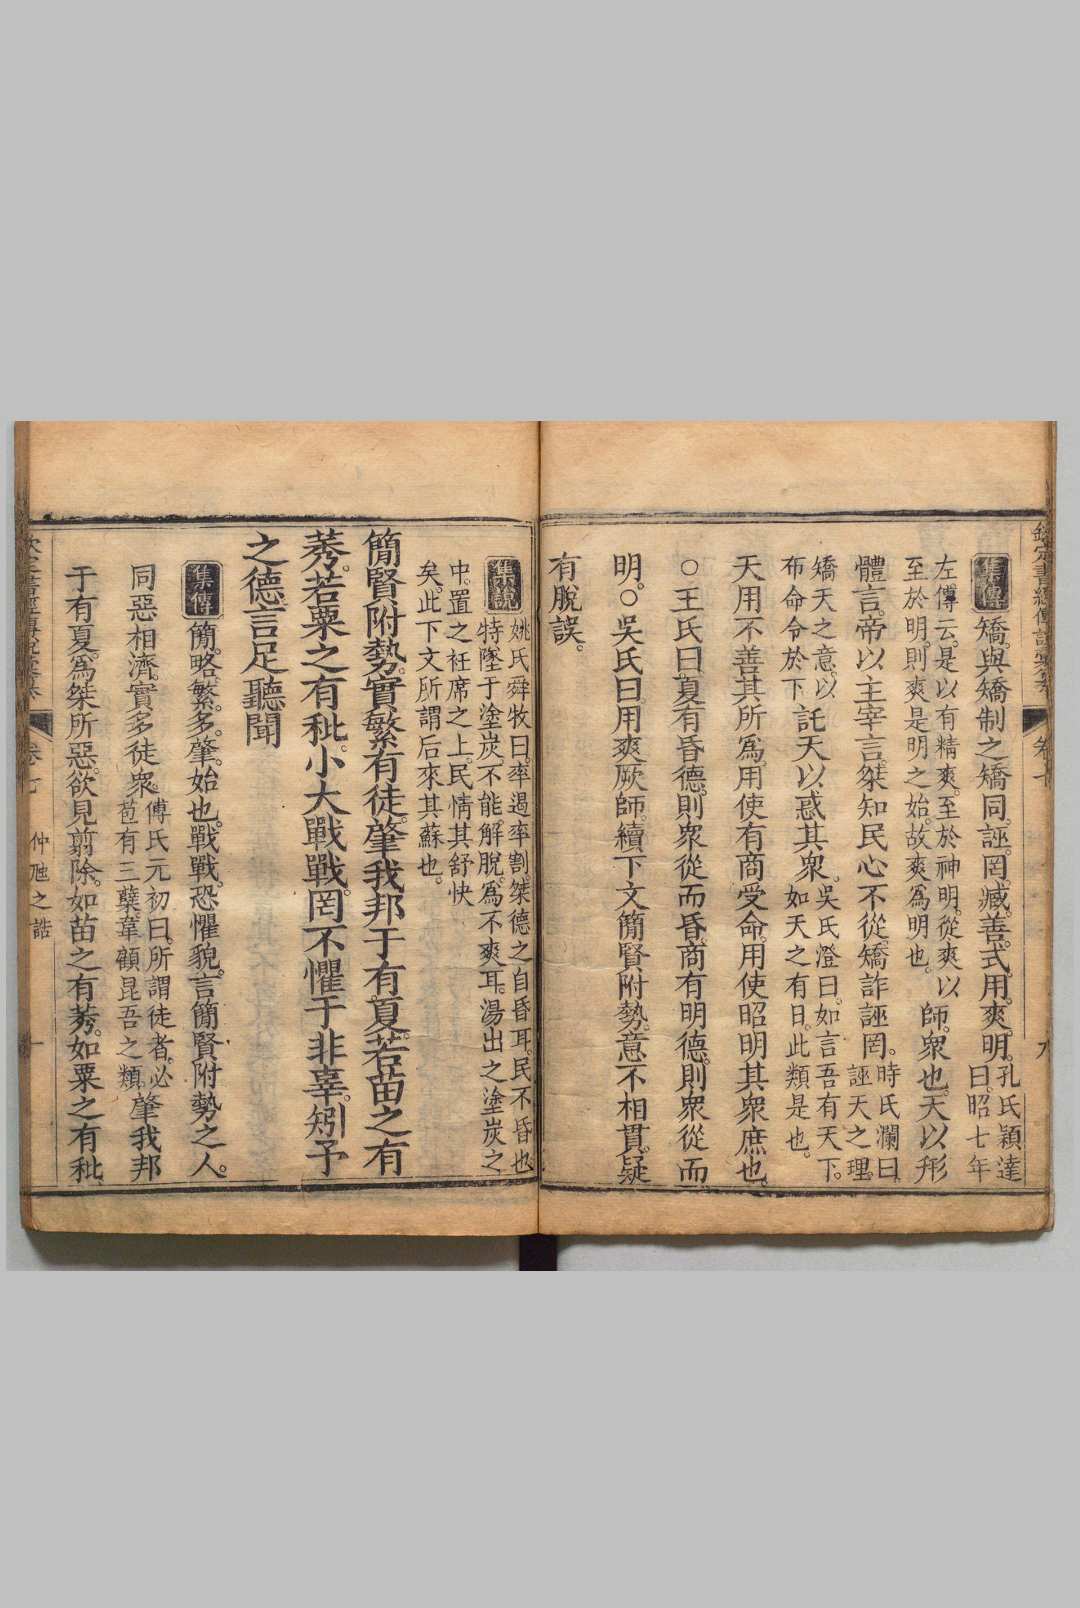 欽定書經傳說彙纂 卷七 九
集傳 矯與矯制之矯同。誣。罔。臧。善。式。用。爽。明。孔氏穎達曰。昭七年
左傳云。是以有精爽。至於神明。從爽以至於明。則爽是明之始。故爽為明也。師。眾也。天以形
體言。帝以主宰言。桀知民心不從。矯詐誣罔。時氏瀾曰。誣天之理。
矯天之意。以布命令於下。託天以惑其眾。吳氏澄曰。如言吾有天下。如天之有日。此類是也。
天用不善其所為。用使有商受命。用使昭明其眾庶也。
○王氏曰。夏有昏德。則眾從而昏。商有明德。則眾從而
明。○吳氏曰。用爽厥師。續下文簡賢附勢。意不相貫。疑
有脫誤。
集說 姚氏舜牧曰。率遏率割。桀德之自昏耳。民不昏也。特墜于塗炭。不能解脫。為不爽耳。湯出之塗炭之
中。置之衽席之上。民情其舒快矣。此下文所謂后來其蘇也。
簡賢附勢。實繁有徒。肇我邦于有夏。若苗之有
莠。若粟之有秕。小大戰戰。罔不懼于非辜。矧予
之德言足聽聞
集傳 簡。略。繁。多。肇。始也。戰戰。恐懼貌。言簡賢附勢之人。
同惡相濟。實多徒眾。傅氏元初曰。所謂徒者。必苞有三櫱。韋顧昆吾之類。肇我邦
于有夏。為桀所惡。欲見翦除。如苗之有莠。如粟之有秕。
欽定書經傳說彙纂 卷七 仲虺之誥